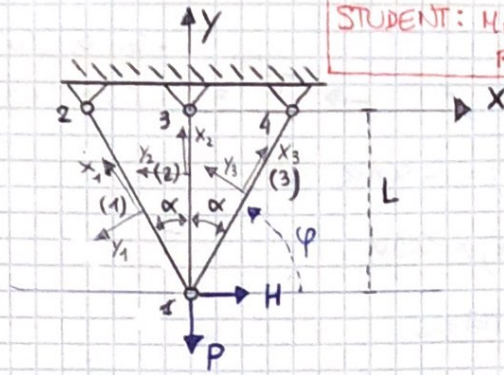 STUDENT: M
Y
X
2
3
4
X₂
Y₂
(2)
Y₃
X₃
(3)
X₁
(1)
Y₁
α
α
φ
L
1
H
P